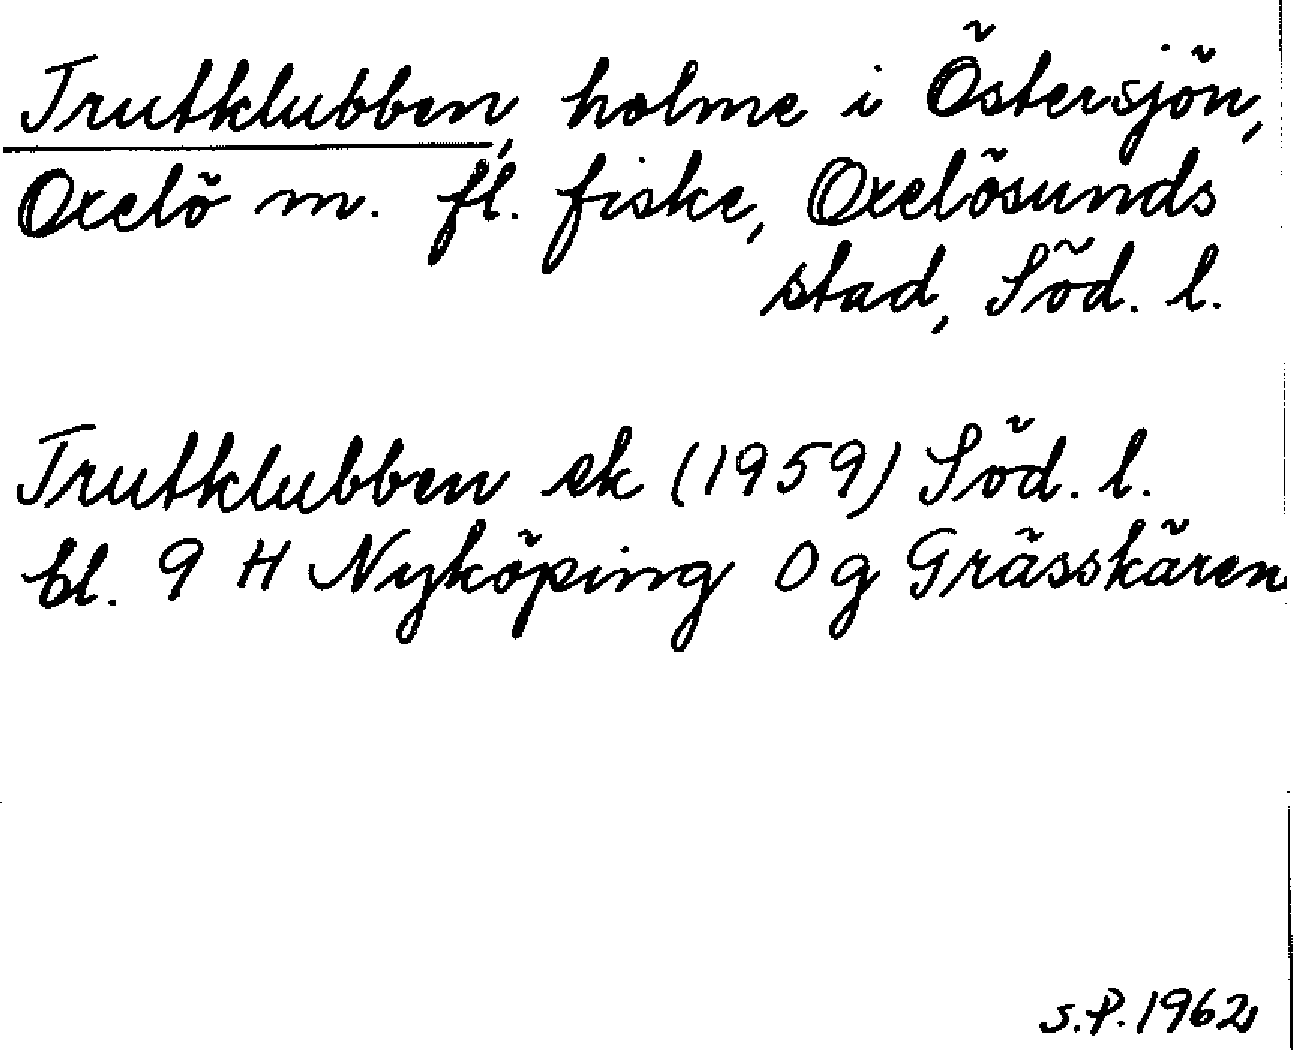 Trutklubben, holme i Östersjön,
Oxelö m. fl. fiske, Oxelösunds
stad, Söd. l.
Trutklubben ek (1959) Söd. l.
bl. 9 H Nyköping 0 g Grässkären
S.P. 1962